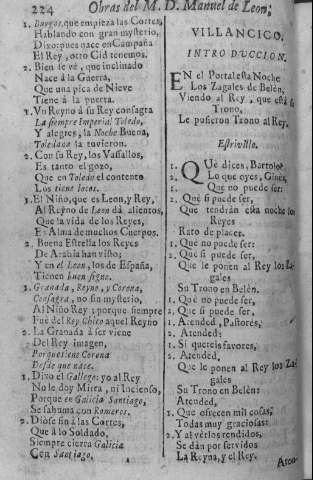 224 Obras del M. D. Manuel de Leon,
1. Burgos, que empieza las Cortes,
Hablando con gran mysterio,
Dixo: pues nace en Campaña
El Rey, otro Cid tenemos.
2. Bien se vè, que inclinado
Nace à la Guerra,
Que una pica de Nieve
Tiene à la puerta.
1. Vn Reyno à su Rey consagra
La siempre Imperial Toledo,
Y alegres, la Noche Buena,
Toledana la tuvieron.
2. Con su Rey, los Vassallos,
Es tanto el gozo,
Que en Toledo el contento
Los tiene locos.
1. El Niño, que es Leon, y Rey,
Al Reyno de Leon dà alientos,
Que la vida de los Reyes,
Es Alma de muchos Cuerpos.
2. Buena Estrella los Reyes
De Arabia han visto;
Y en el Leon, los de España,
Tienen buen signo.
1. Granada, Reyno, y Corona,
Consagra, no sin mysterio,
Al Niño Rey; porque siempre
Fuè del Rey Chico aquel Reyno
2. La Granada à ser viene
Del Rey imagen,
Porque tiene Corona
Desde que nace.
1. Dixo el Gallego: yo al Rey
No le doy Mirra, ni Incienso,
Porque en Galicia Santiago,
Se sahuma con Romeros.
2. Diòse fin à las Cortes,
Que à lo Soldado,
Siempre cierra Galicia
Con Santiago.
VILLANCICO.
INTRODVCCION.
EN el Portal esta Noche
Los Zagales de Belèn,
Viendo al Rey, que està
Trono,
Le pusieron Trono al Rey.
Estrivillo.
1. QUè dicen, Bartolo?
2. Lo que oyes, Ginès,
1. Que no puede ser:
2. Què si puede ser,
Que tendràn esta noche los
Reyes
Rato de placer.
1. Què no puede ser:
2. Què si puede ser,
Que le ponen al Rey los Zagales
Su Trono en Belèn.
1. Què no puede ser,
2. Què si puede ser:
1. Atended, Pastores,
2. Atended:
1. Si quereis favores,
2. Atended,
Que le ponen al Rey los Zagales
Su Trono en Belèn:
Atended,
1. Que ofrecen mil cosas,
Todas muy graciosas:
2. Y al vèrlos rendidos,
Se dàn por servidos
La Reyna, y el Rey.